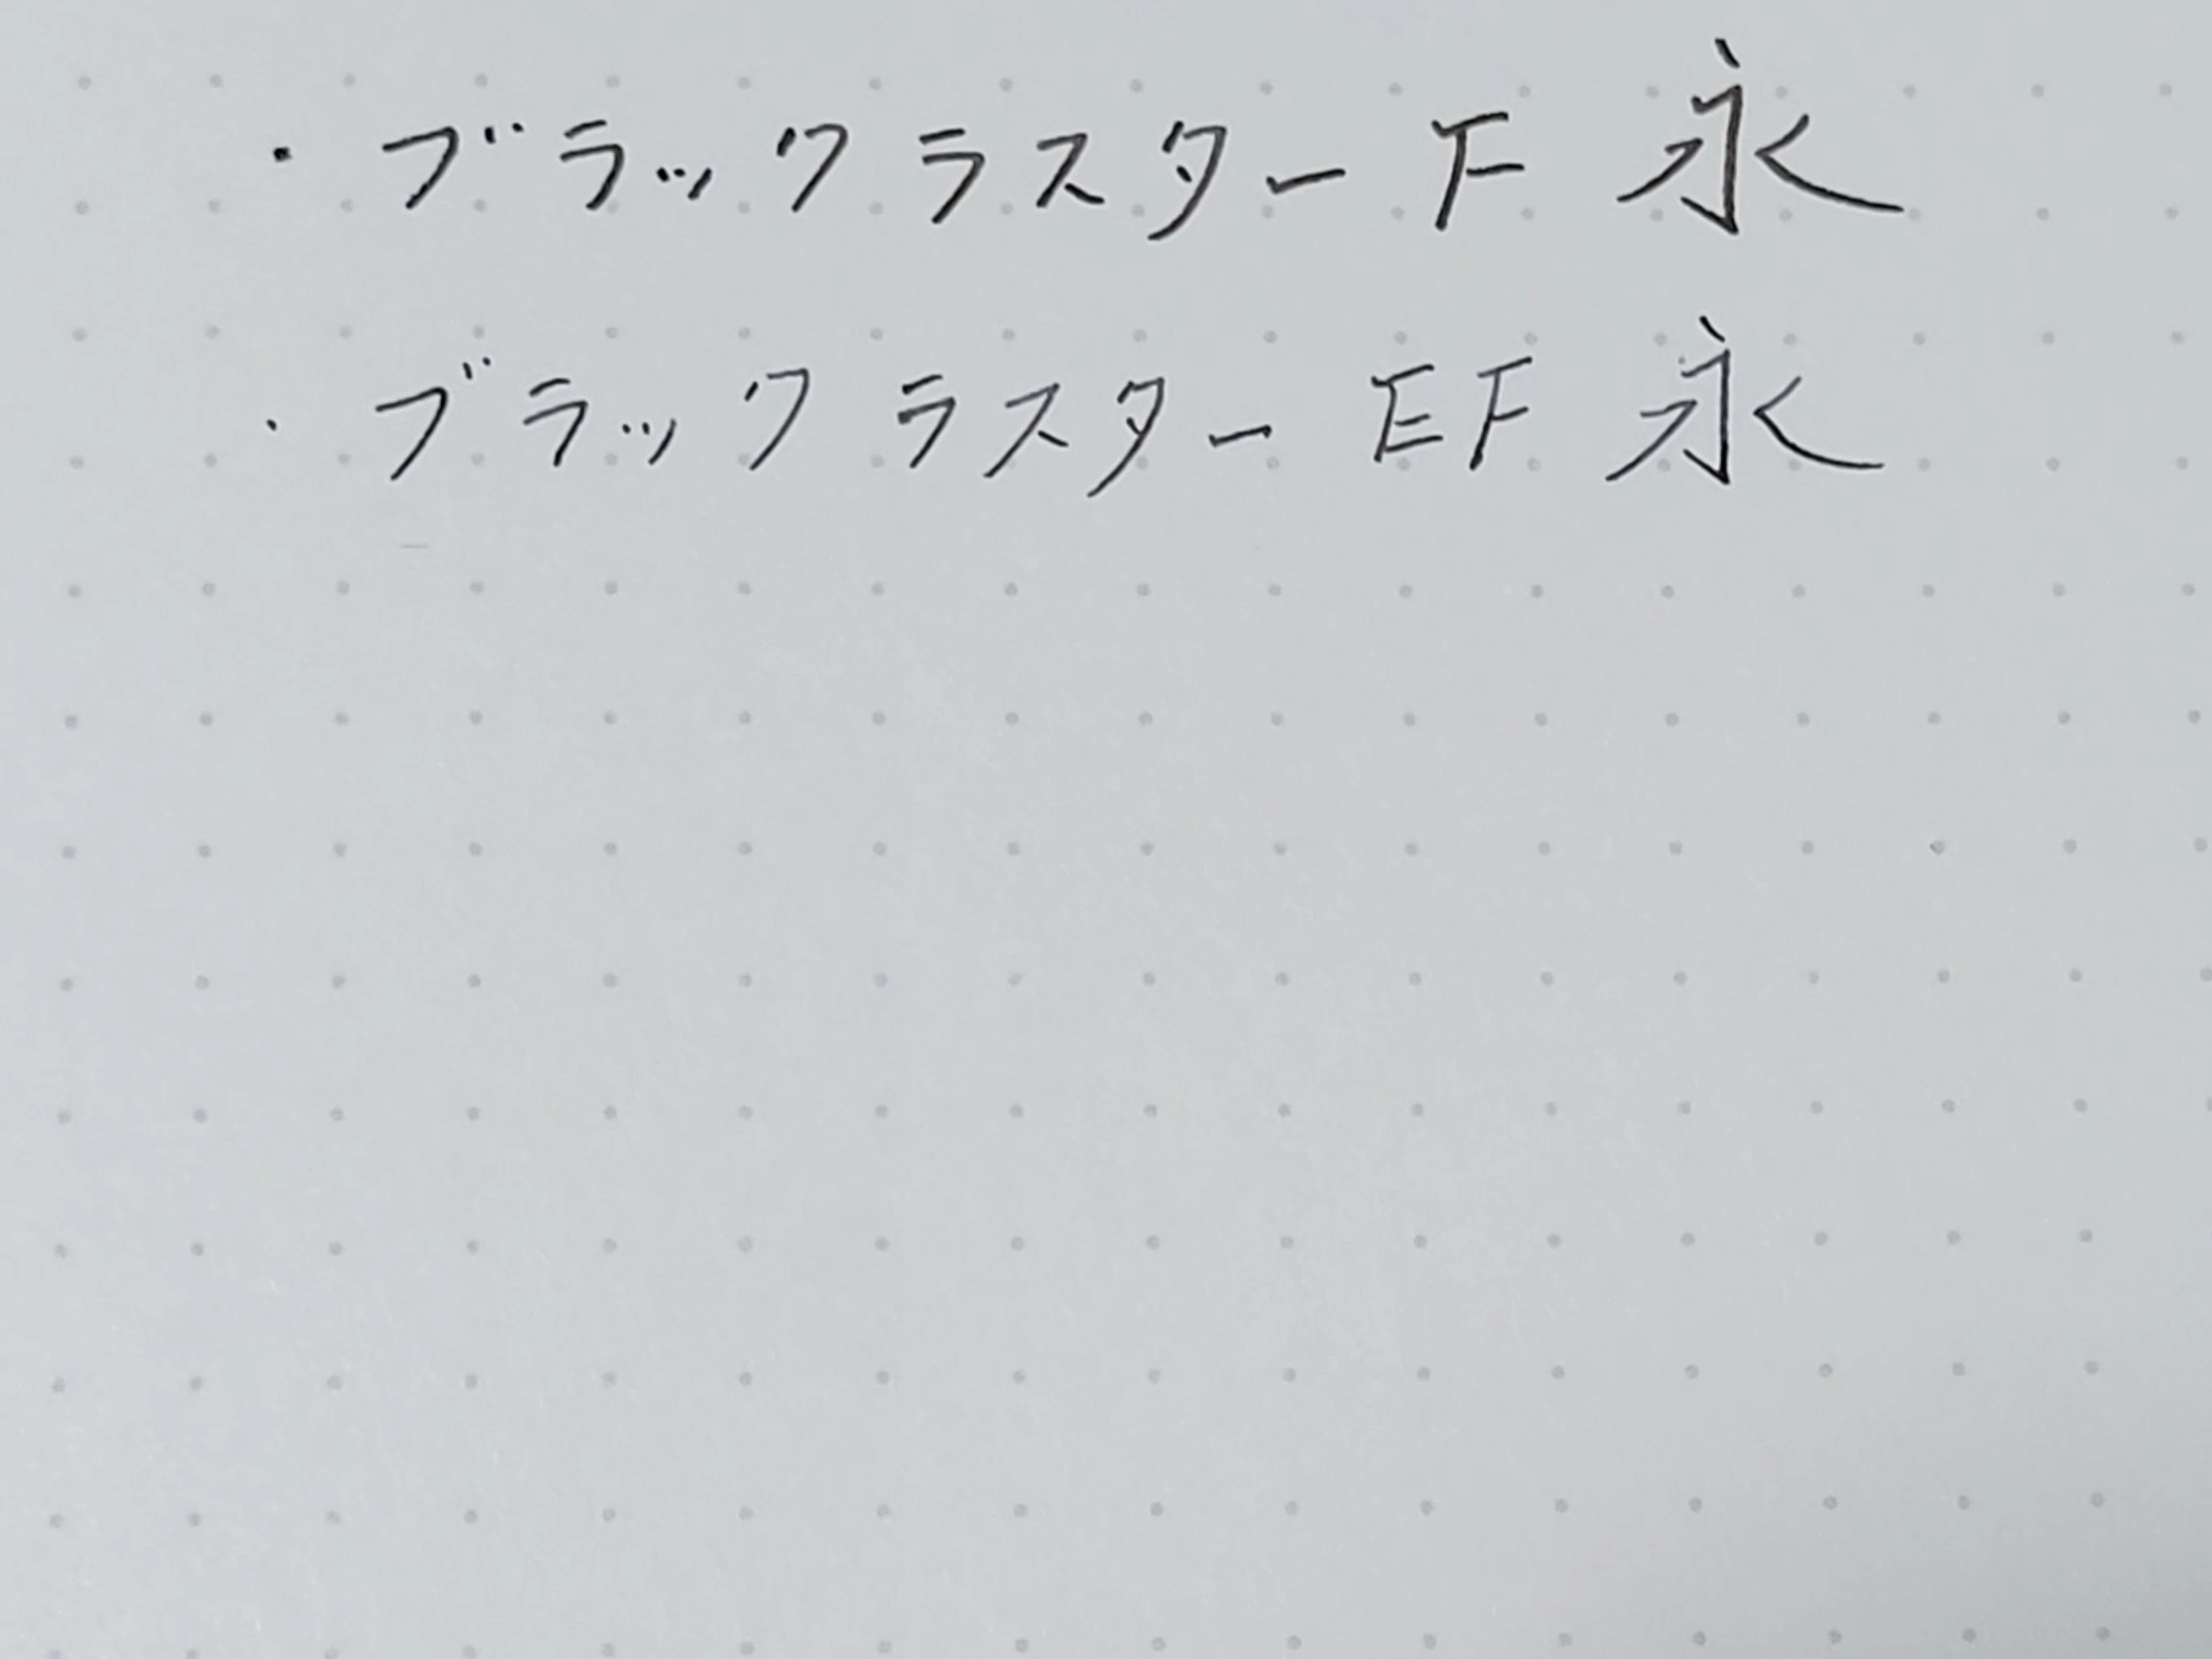 ・ブラックラスター F 永
・ブラックラスター EF 永